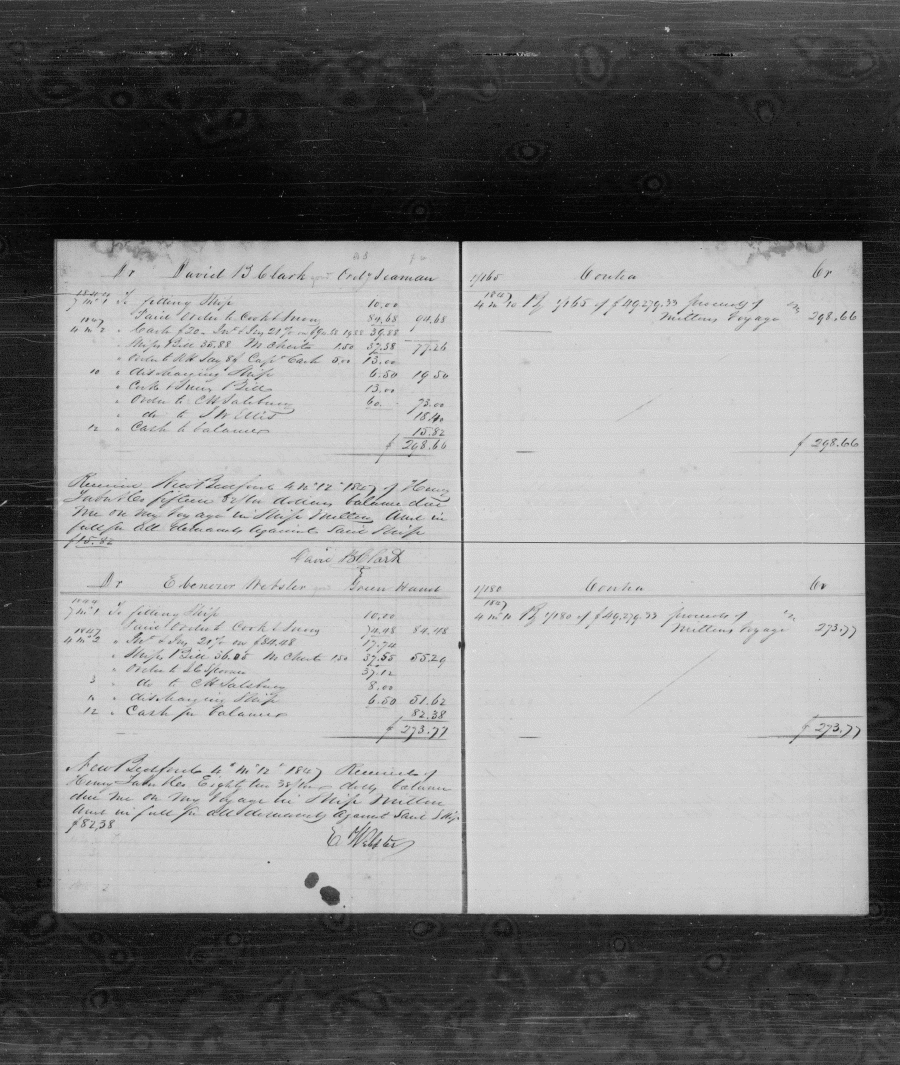 Dr David B Clark Ordy Seaman
1844
7 m 1 To fitting Ship 10.00
Paid Order to Cook & Snow 84.68 94.68
1847
4 m 2 " Cash $20 Int & Ins 21% 19.88 39.88
" Ships Bill 35.88 M Chests 1.50 37.38 77.26
" Order 5.00 13.00
10 " discharging Ship 6.50 19.50
" Cook & Snow Bill 13.00
" Order to CH Salsbury 60. 73.00
" do to J Willis 18.40
12 " Cash to balance 15.82
$ 298.66
Received New Bedford 4 m 12 1847 of Henry
Taber & Co fifteen 82/100 dollars balance due
me on my Voyage in Ship Milton And in
full for all demands against said Ship
$15.82
David B Clark
Dr Ebenezer Webster Green Hand
1844
7 m 1 To fitting Ship 10.00
Paid Order to Cook & Snow 74.48 84.48
1847
4 m 2 " Int & Ins 21% on $84.48 17.74
" Ships Bill 36.05 M Chests 1.50 37.55 55.29
" Order to 37.12
3 " do to CH Salsbury 8.00
" discharging Ship 6.50 51.62
12 " Cash for balance 82.38
$ 273.77
New Bedford 4 m 12 1847 Received of
Henry Taber & Co Eighty two 38/100 dolls balance
due me on my Voyage in Ship Milton
And in full for all demands against said Ship
$82.38
E Webster
1/165 Contra Cr
1847
4 m 10 By 1/165 of $49,279.33 proceeds of
Miltons Voyage 298.66
$ 298.66
1/180 Contra Cr
1847
4 m 10 By 1/180 of $49,279.33 proceeds of
Miltons Voyage 273.77
$ 273.77